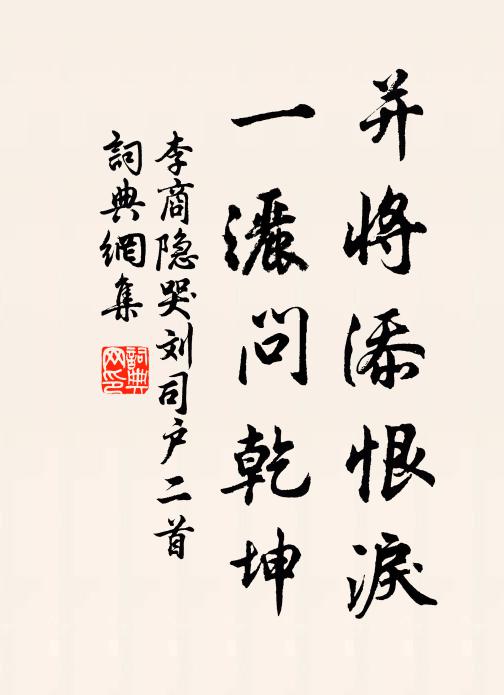 并将添恨淚
一灑問乾坤
李商隐哭刘司户二首
詞典網集
詞典网印